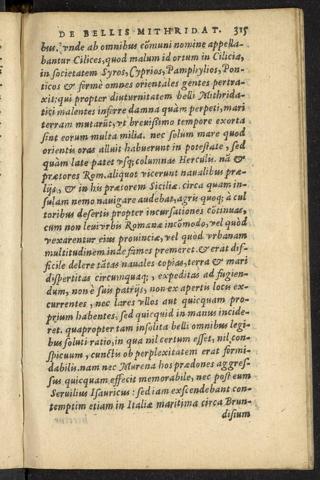 DE BELLIS MITHRIDAT. 315
bus. vnde ab omnibus cōmuni nomine appella-
bantur Cilices, quod malum id ortum in Cilicia,
in societatem Syros, Cyprios, Pamphylios, Pon-
ticos & fermè omnes orientales gentes pertra-
xit: qui propter diuturnitatem belli Mithrida-
tici malentes inferre damna quàm perpeti, mari
terram mutarūt, vt breuissimo tempore exorta
sint eorum multa milia. nec solum mare quod
orientis oras alluit habuerunt in potestate, sed
quàm late patet vsq; columnas Herculis. nā &
prætores Rom. aliquot vicerunt naualibus præ-
lijs, & in his prætorem Siciliæ. circa quam in-
sulam nemo nauigare audebat, agri quoq; à cul
toribus deserti propter incursationes cōtinuas,
cum non leui vrbis Romanæ incōmodo, vel quòd
vexarentur eius prouinciæ, vel quòd vrbanam
multitudinem inde fames premeret. & erat dif-
ficile delere tātas nauales copias, terra & mari
dispertitas circumquaq; , expeditas ad fugien-
dum, non è suis patrijs, non ex apertis locis ex-
currentes, nec lares vllos aut quicquam pro-
prium habentes, sed quicquid in manus incide-
ret. quapropter tam insolita belli omnibus legi-
bus soluti ratio, in qua nil certum esset, nil con-
spicuum, cunctis ob perplexitatem erat formi-
dabilis. nam nec Murena hos prædones aggres-
sus quicquam effecit memorabile, nec post eum
Seruilius Isauricus: sed iam exscendebant con-
temptim etiam in Italiæ maritima circa Brun-
disium